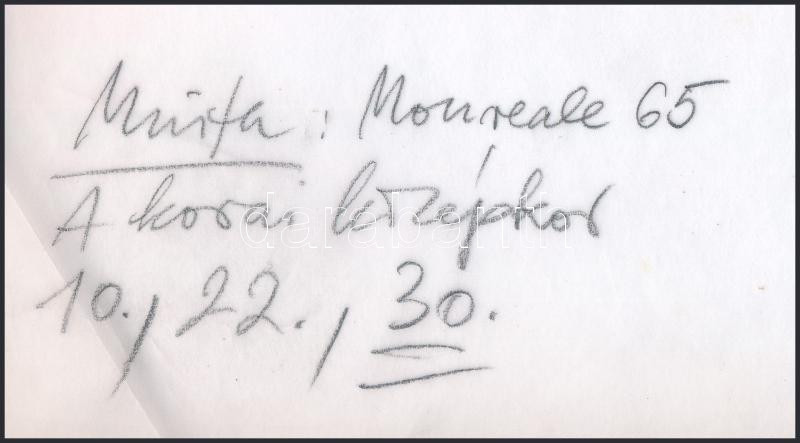 Minta: Monreale 65
A korai középkor
10., 22., 30.
darabanth